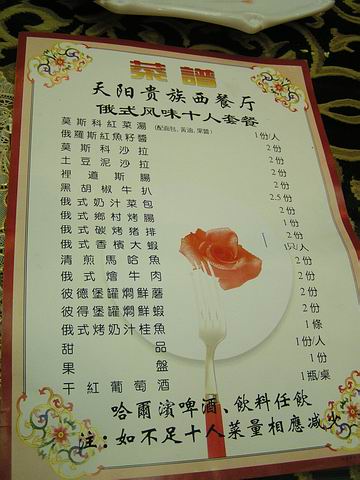 菜譜
天阳贵族西餐厅
俄式风味十人套餐
莫斯科紅菜湯 (配面包, 黃油, 果醬) 1份/人
俄羅斯紅魚籽醬 2份
莫斯科沙拉 2份
土豆泥沙拉 2份
裡道斯腸 2份
黑胡椒牛扒 2份
俄式奶汁菜包 2.5份
俄式鄉村烤腸 2份
俄式碳烤豬排 2份
俄式香檳大蝦 1只/人
清煎馬哈魚 2份
俄式燴牛肉 2份
彼德堡罐燜鮮蘑 2份
彼得堡罐燜鮮蝦 2份
俄式烤奶汁桂魚 1條
甜品 1份/人
果盤 1份
干紅葡萄酒 1瓶/桌
哈爾濱啤酒、飲料任飲
注：如不足十人菜量相應減少